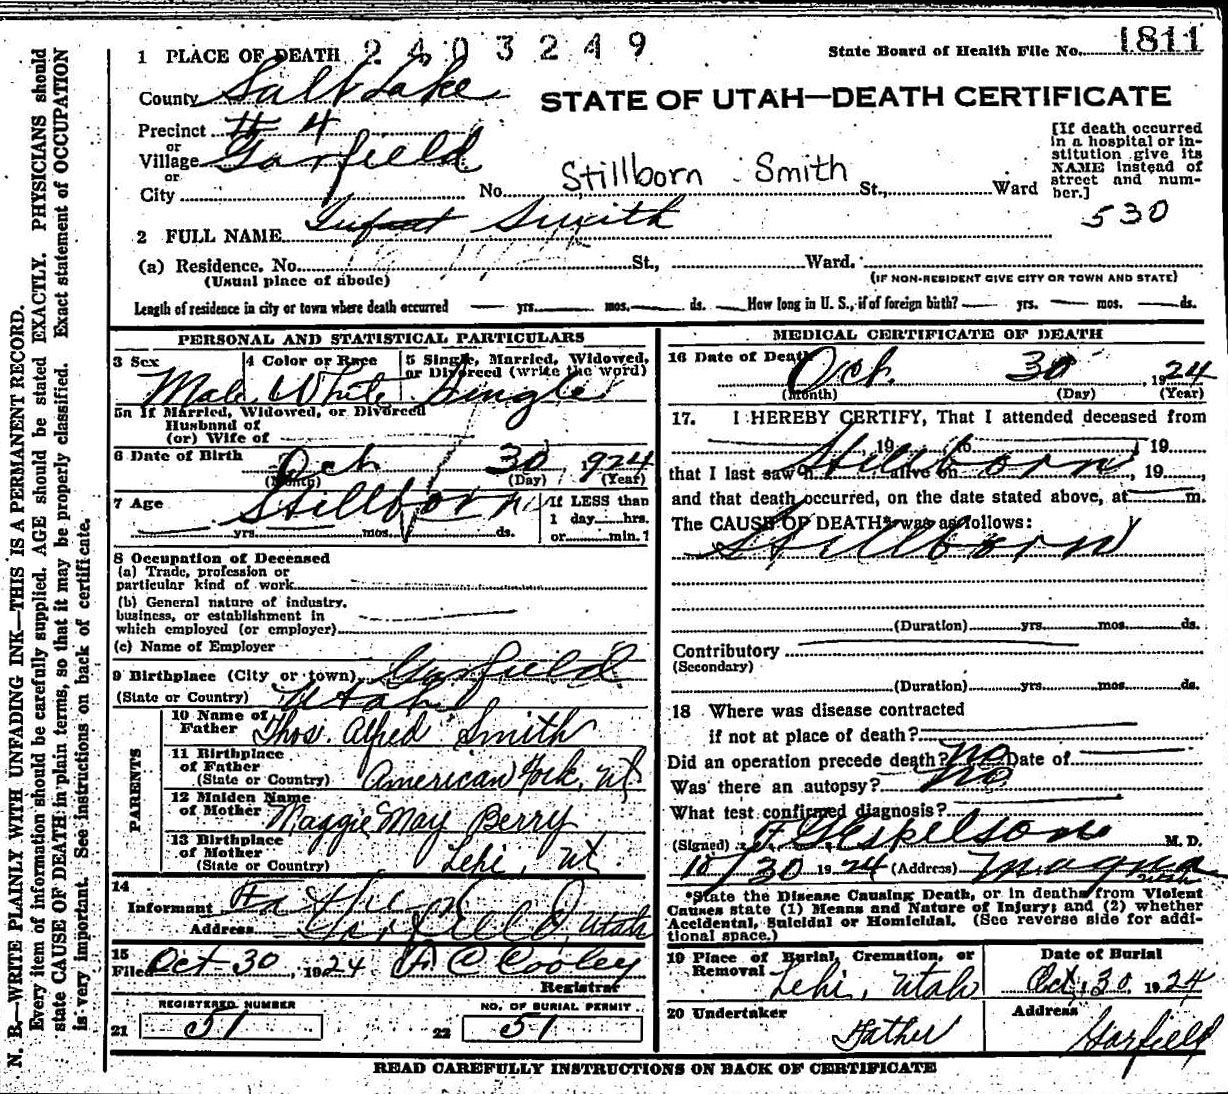 N. B.—WRITE PLAINLY WITH UNFADING INK—THIS IS A PERMANENT RECORD.
Every item of information should be carefully supplied. AGE should be stated EXACTLY. PHYSICIANS should
state CAUSE OF DEATH in plain terms, so that it may be properly classified. Exact statement of OCCUPATION
is very important. See instructions on back of certificate.
1 PLACE OF DEATH 2403249
State Board of Health File No. 1811
County Salt Lake
STATE OF UTAH—DEATH CERTIFICATE
Precinct # 4
or
Village Garfield
or
City
No. Stillborn Smith St., Ward
[If death occurred
in a hospital or in-
stitution give its
NAME instead of
street and num-
ber.]
530
2 FULL NAME Infant Smith
(a) Residence. No. St., Ward.
(Usual place of abode)
(IF NON-RESIDENT GIVE CITY OR TOWN AND STATE)
Length of residence in city or town where death occurred — yrs. — mos. — ds. — How long in U. S., if of foreign birth? — yrs. — mos. — ds.
PERSONAL AND STATISTICAL PARTICULARS
3 Sex
Male
4 Color or Race
White
5 Single, Married, Widowed,
or Divorced (write the word)
Single
5a If Married, Widowed, or Divorced
Husband of
(or) Wife of
6 Date of Birth Oct 30 1924
(Month) (Day) (Year)
7 Age Stillborn
yrs. mos. ds.
If LESS than
1 day hrs.
or min.?
8 Occupation of Deceased
(a) Trade, profession or
particular kind of work
(b) General nature of industry,
business, or establishment in
which employed (or employer)
(c) Name of Employer
9 Birthplace (City or town) Garfield
(State or Country) Utah
PARENTS
10 Name of
Father Thos. Alfred Smith
11 Birthplace
of Father
(State or Country) American Fork, Ut
12 Maiden Name
of Mother Maggie May Berry
13 Birthplace
of Mother
(State or Country) Lehi, Ut.
14
Informant Father
Address Garfield, Utah
15
Filed Oct-30, 1924 C Cooley
Registrar
REGISTERED NUMBER
21 51
NO. OF BURIAL PERMIT
22 51
MEDICAL CERTIFICATE OF DEATH
16 Date of Death Oct. 30, 1924
(Month) (Day) (Year)
17. I HEREBY CERTIFY, That I attended deceased from
, 19 to , 19
that I last saw h alive on Stillborn, 19 ,
and that death occurred, on the date stated above, at m.
The CAUSE OF DEATH* was as follows:
Stillborn
(Duration) yrs. mos. ds.
Contributory
(Secondary)
(Duration) yrs. mos. ds.
18 Where was disease contracted
if not at place of death?
Did an operation precede death? no Date of
Was there an autopsy? no
What test confirmed diagnosis?
(Signed) M. D.
10/30 1924 (Address) Magna
*State the Disease Causing Death, or in deaths from Violent
Causes state (1) Means and Nature of Injury; and (2) whether
Accidental, Suicidal or Homicidal. (See reverse side for addi-
tional space.)
19 Place of Burial, Cremation, or
Removal
Lehi, Utah
Date of Burial
Oct. 30, 1924
20 Undertaker
Father
Address
Garfield
READ CAREFULLY INSTRUCTIONS ON BACK OF CERTIFICATE